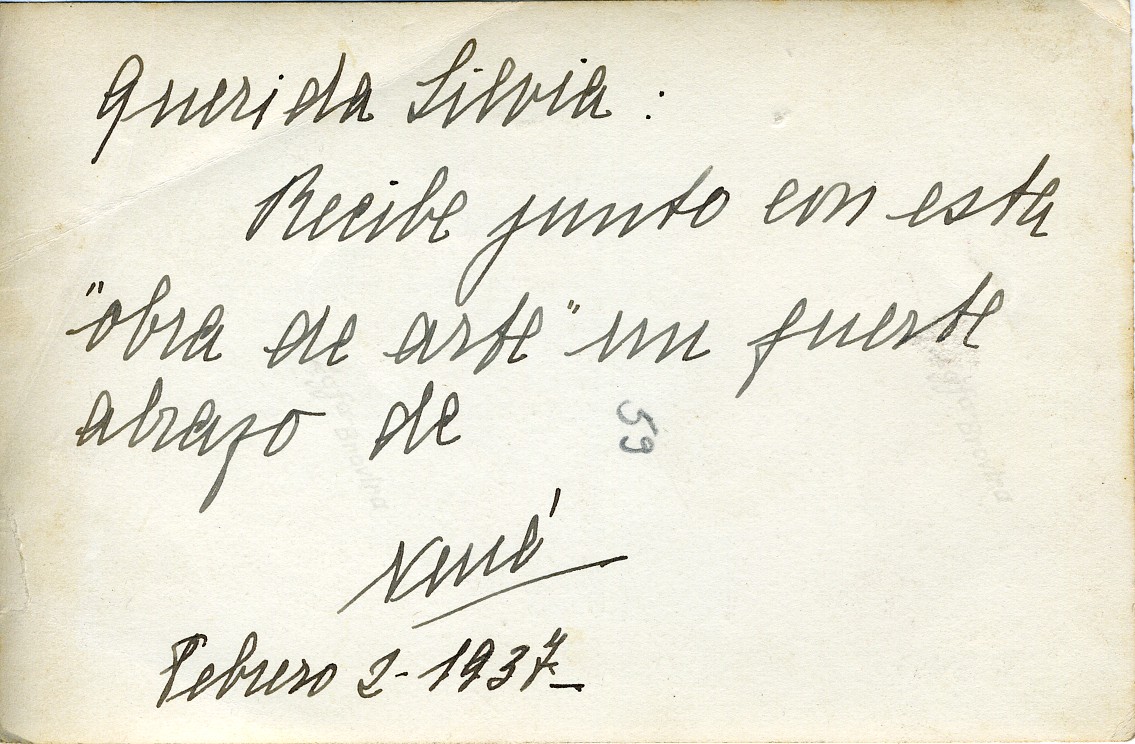 Querida Silvia:
Recibe junto con esta
"obra de arte" un fuerte
abrazo de
59
René
Febrero 2-1937